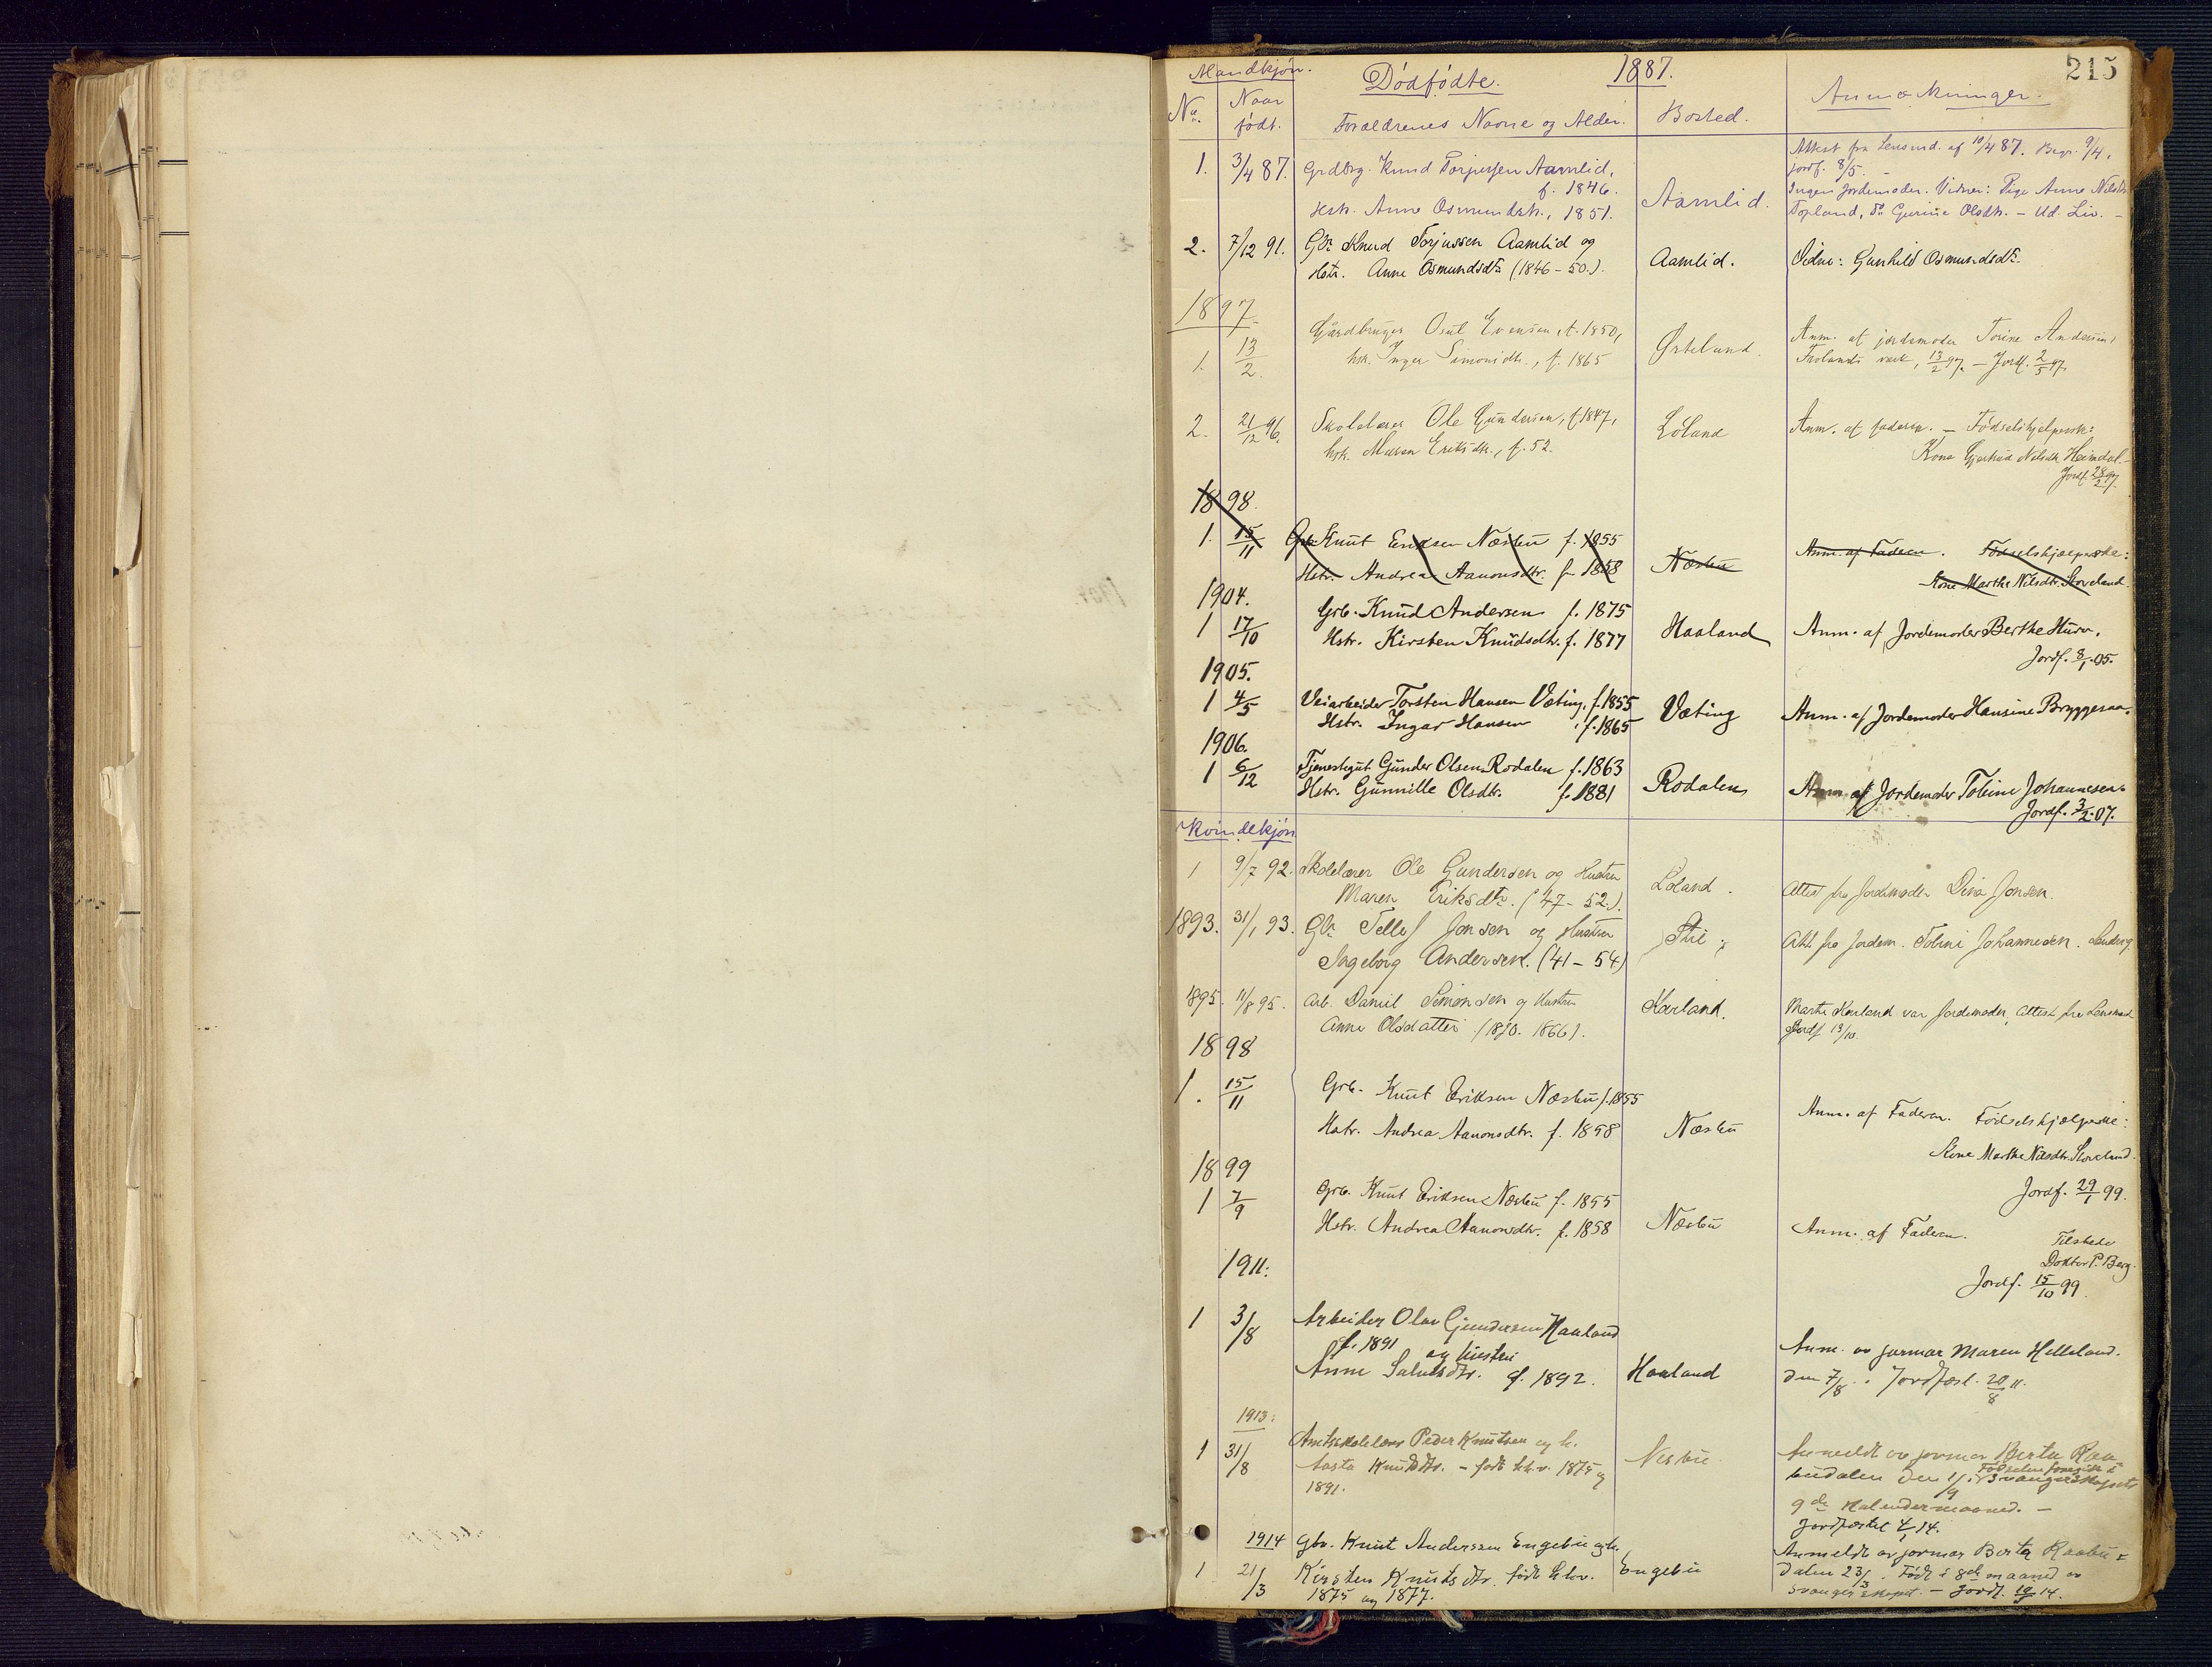 215
Mandkjøn. Dødfødte. 1887.
No. Naar født. Forældrenes Navne og Alder. Bosted. Anmærkninger.
1. 3/4 87. Grdbrg. Knud Torjussen Aamlid, Attest fra Lensmd. af 10/4 87. Begr. 9/4,
f. 1846. jordf. 8/5. -
Hstr. Anne Osmundsdtr., 1851. Aamlid. Ingen Jordemoder. Vidner: Pige Anne Nilsdtr
Topland, do Gurine Olsdtr. - Ud. Liv. -
2. 7/12 91. Gbr. Knud Torjussen Aamlid og
Hstr. Anne Osmundsdtr (1846-50.). Aamlid. Vidne: Gunhild Osmundsdtr.
1897
1. 13/2. Gårdbruger Osul Evensen, f. 1850, Anm. af jordemoder Torine Andersen,
hstr. Inger Simonsdtr., f. 1865 Ørteland Frolands værk, 13/2 97. - Jordf. 2/5 97.
2. 21/12 96. Skolelærer Ole Gundersen, f 1847, Løland Anm. af faderen. - Fødselshjelpersk:
hstr. Maren Eriksdtr., f. 52. Kone Gjertrud Nilsdtr. Heimdal. -
Jordf. 28/2 97.
1898
1. 15/11 Grb. Knut Eriksen Næsbu f. 1855 Anm. af Faderen. Fødselshjælperske:
Hstr. Andrea Aanonsdtr. f. 1858 Næsbu Kone Marthe Nilsdtr. Skoveland.
1904.
1 17/10 Grb. Knud Andersen f. 1875
Hstr. Kirsten Knudsdtr. f. 1877 Haaland Anm. af Jordemoder Berthe Hurv.
Jordf. 8/1.05.
1905.
1 4/5 Veiarbeider Torsten Hansen Væting, f. 1855
Hstr. Ingar Hansen f. 1865 Væting Anm. af Jordemoder Hansine Bryggesaa.
1906.
1 6/12 Tjenestegut Gunder Olsen Rodalen f. 1863
Hstr. Gunnille Olsdtr. f. 1881 Rodalen Anm. af Jordemoder Toline Johannesen.
Jordf. 3/2.07.
Kvindekjøn
1 9/7 92. Skolelærer Ole Gundersen og Hustru
Maren Eriksdtr. (47-52.). Løland. Attest fra Jordemoder Dina Jonsen.
1893. 31/1 93. Gbr Tellef Jonsen og Hustru
Ingeborg Andersen. (41-54) Att. fra Jordem. Tolini Johannesen.
1895. 11/8 95. Arb. Daniel Simonsen og Hustru
Anne Olsdatter (1870. 1866). Karland. Marthe Karland var Jordemoder, Attest fra Lensmand
Jordf 13/10.
1898
1. 15/11 Grb. Knut Eriksen Næsbu f. 1855 Anm. af Faderen. Fødselshjælperske:
Hstr. Andrea Aanonsdtr. f. 1858 Næsbu Kone Marthe Nilsdtr. Skoveland.
Jordf. 29/1 99.
1899
1 7/9 Grb. Knut Eriksen Næsbu f. 1855
Hstr. Andrea Aanonsdtr. f. 1858 Næsbu Anm. af Faderen. Tilstede
Doktor P. Berg.
Jordf. 15/10 99.
1911:
1 3/8 Arbeider Olav Gundersen Haaland
f. 1891 og hustru Anm. av jormor Maren Helleland.
Anne Salvesdtr. f. 1892. Haaland den 7/8. Jordfæst. 20/8 11.
1913:
1 31/8 Amtsskolelærer Peder Knutsen og h. Anmeldt av jormor Berta Raa-
Aasta Knutsdtr. - født hhv. 1875 og Nesbu budalen den 1/9. Fødselen foregik i svangerskapets
1891. 9de kalendermaaned. -
Jordfæstet 4/1 14.
1914 Gbr. Knut Anderssen Engebu og h. Anmeldt av jormor Berta Raabu=
1 21/3 Kirsten Knutsdtr. født hhv. Engebu dalen 23/3. Født i 8de maaned av
1875 og 1877. svangerskapet. - Jordf. 14.